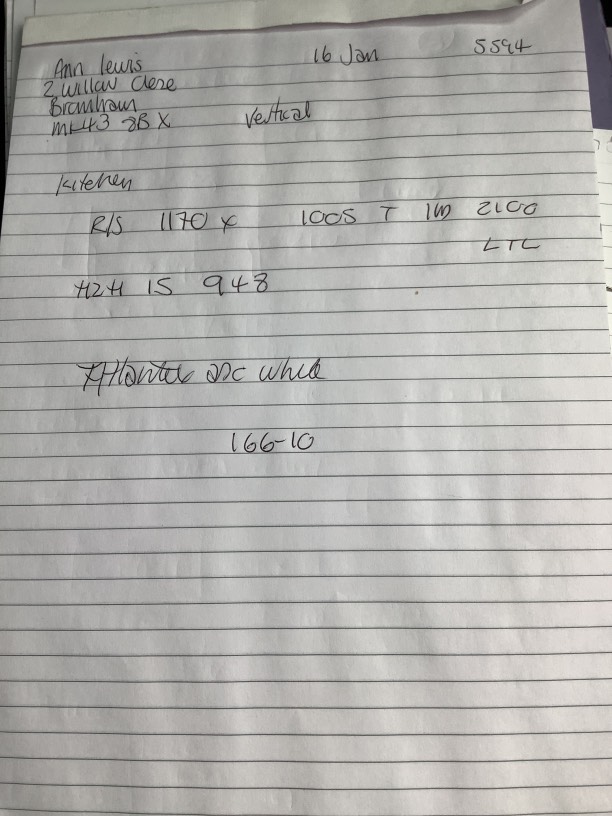 Ann Lewis 16 Jan 5594
2 Willow Close
Bromham
MK43 8BX Vertical
Kitchen
R/S 1170 x 1005 T IW 2100
LTL
H2H IS 948
Atlantex asc white
166-10